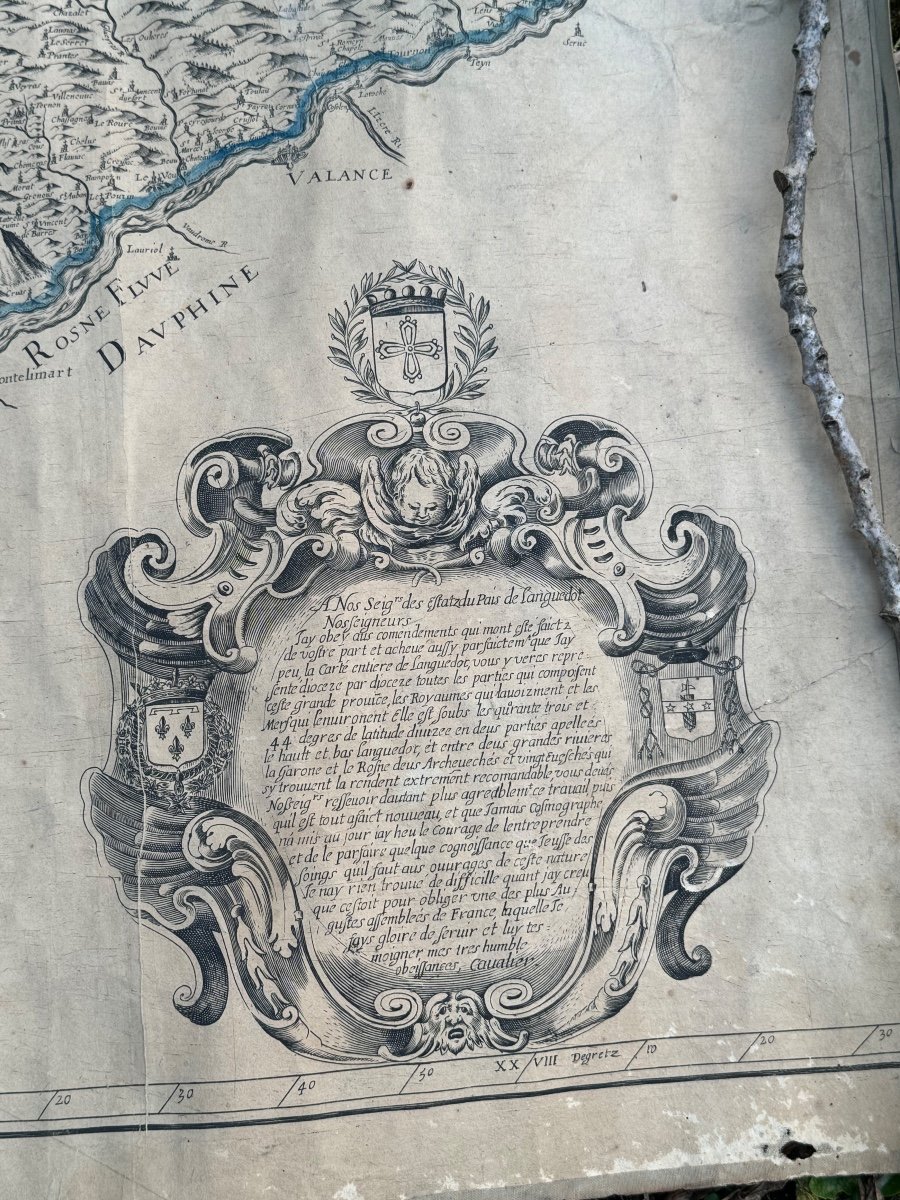 Chazalet
Launas
Le Serret
Prantes
Ozkeres
Veyras
Villeneuve
Tornon
Chassagnes
Le Roure
Chelus
Flauiac
Rampon
Le Pouzin
St Vincent
de Barres
Toulau
Crussol
Tournon
Teyn
Serue
Laroche
Lizere R.
VALANCE
Vaudrome R
Lauriol
ROSNE FLVVE
DAVPHINE
ontelimart
A Nos Seigrs des Estatz du Païs de Languedoc
Nosseigneurs
Jay obey aus comendements qui mont este faict z
de vostre part et acheue aussy parfaictemt que Jay
peu, la Carte entiere de Languedoc, vous y veres repre-
sente dioceze par dioceze toutes les parties qui composent
ceste grande prouīce, les Royaumes qui lauoizinent et les
Mers qui lenuironent Elle est soubs les quarante trois et
44 degres de latitude diuizee en deus parties apellees
le hault et bas languedoc, et entre deus grandes riuieres
la Garone et le Rosne deus Archeueches et vingt Euesches qui
sy trouuent la rendent extrement recomandable, vous deues
Nosseigrs ressevoir dautant plus agreablemt ce trauail puis
quil est tout afaict nouueau, et que Jamais Cosmographe
na mis au jour iay heu le Courage de lentreprendre
et de le parfaire quelque cognoissance que Jeusse des
soings quil faut aus ouurages de ceste nature
Je nay rien trouue de difficille quant jay creu
que cestoit pour obliger vne des plus Au-
gustes assemblees de France, laquelle Je
fays gloire de seruir et luy tes-
moigner mes tres humble
obeissances, Caualier.
20 30 40 50 XX VIII Degretz 10 20 30